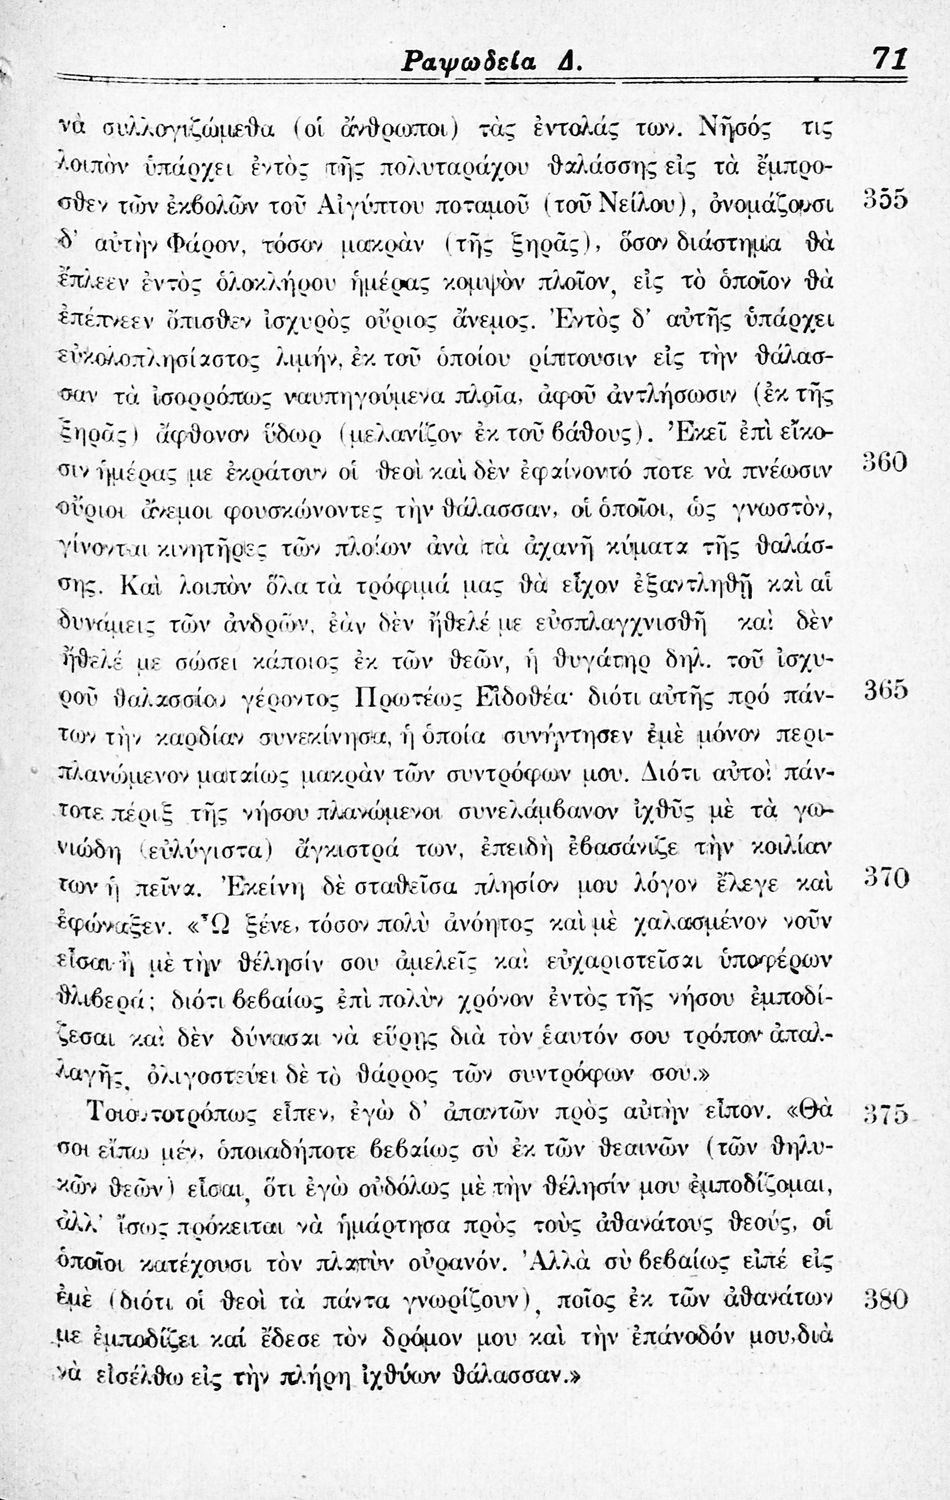 Ραψωδεία Δ. 71
νὰ συλλογιζώμεθα (οἱ ἄνθρωποι) τὰς ἐντολάς των. Νῆσός τις
λοιπὸν ὑπάρχει ἐντὸς τῆς πολυταράχου θαλάσσης εἰς τὰ ἔμπρο-
σθεν τῶν ἐκβολῶν τοῦ Αἰγύπτου ποταμοῦ (τοῦ Νείλου), ὀνομάζουσι 355
δ' αὐτὴν Φάρον, τόσον μακρὰν (τῆς ξηρᾶς), ὅσον διάστημα θὰ
ἔπλεεν ἐντὸς ὁλοκλήρου ἡμέρας κομψὸν πλοῖον, εἰς τὸ ὁποῖον θὰ
ἐπέπνεεν ὄπισθεν ἰσχυρὸς οὔριος ἄνεμος. Ἐντὸς δ' αὐτῆς ὑπάρχει
εὐκολοπλησίαστος λιμήν, ἐκ τοῦ ὁποίου ρίπτουσιν εἰς τὴν θάλασ-
σαν τὰ ἰσορρόπως ναυπηγούμενα πλοῖα, ἀφοῦ ἀντλήσωσιν (ἐκ τῆς
ξηρᾶς) ἄφθονον ὕδωρ (μελανίζον ἐκ τοῦ βάθους). Ἐκεῖ ἐπὶ εἴκο-
σιν ἡμέρας με ἐκράτουν οἱ θεοὶ καὶ δὲν ἐφαίνοντό ποτε νὰ πνέωσιν 360
οὔριοι ἄνεμοι φουσκώνοντες τὴν θάλασσαν, οἱ ὁποῖοι, ὡς γνωστὸν,
γίνονται κινητῆρες τῶν πλοίων ἀνὰ τὰ ἀχανῆ κύματα τῆς θαλάσ-
σης. Καὶ λοιπὸν ὅλα τὰ τρόφιμά μας θὰ εἶχον ἐξαντληθῇ καὶ αἱ
δυνάμεις τῶν ἀνδρῶν, ἐὰν δὲν ἤθελέ με εὐσπλαγχνισθῆ καὶ δὲν
ἤθελέ με σώσει κάποιος ἐκ τῶν θεῶν, ἡ θυγάτηρ δηλ. τοῦ ἰσχυ-
ροῦ θαλασσίου γέροντος Πρωτέως Εἰδοθέα· διότι αὐτῆς πρό πάν- 365
των τὴν καρδίαν συνεκίνησα, ἡ ὁποία συνήντησεν ἐμὲ μόνον περι-
πλανώμενον ματαίως μακρὰν τῶν συντρόφων μου. Διότι αὐτοὶ πάν-
τοτε πέριξ τῆς νήσου πλανώμενοι συνελάμβανον ἰχθῦς μὲ τὰ γω-
νιώδη (εὐλύγιστα) ἄγκιστρά των, ἐπειδὴ ἐβασάνιζε τὴν κοιλίαν
των ἡ πεῖνα. Ἐκείνη δὲ σταθεῖσα πλησίον μου λόγον ἔλεγε καὶ 370
ἐφώναξεν. «Ὦ ξένε, τόσον πολὺ ἀνόητος καὶ μὲ χαλασμένον νοῦν
εἶσαι ἢ μὲ τὴν θέλησίν σου ἀμελεῖς καὶ εὐχαριστεῖσαι ὑποφέρων
θλιβερά; διότι βεβαίως ἐπὶ πολὺν χρόνον ἐντὸς τῆς νήσου ἐμποδί-
ζεσαι καὶ δὲν δύνασαι νὰ εὕρῃς διὰ τὸν ἑαυτόν σου τρόπον ἀπαλ-
λαγῆς, ὀλιγοστεύει δὲ τὸ θάρρος τῶν συντρόφων σου.»
Τοιουτοτρόπως εἶπεν, ἐγὼ δ' ἀπαντῶν πρὸς αὐτὴν εἶπον. «Θὰ 375
σοι εἴπω μέν, ὁποιαδήποτε βεβαίως σὺ ἐκ τῶν θεαινῶν (τῶν θηλυ-
κῶν θεῶν) εἶσαι, ὅτι ἐγὼ οὐδόλως μὲ τὴν θέλησίν μου ἐμποδίζομαι,
ἀλλ' ἴσως πρόκειται νὰ ἡμάρτησα πρὸς τοὺς ἀθανάτους θεούς, οἱ
ὁποῖοι κατέχουσι τὸν πλατὺν οὐρανόν. Ἀλλὰ σὺ βεβαίως εἰπέ εἰς
ἐμὲ (διότι οἱ θεοὶ τὰ πάντα γνωρίζουν), ποῖος ἐκ τῶν ἀθανάτων 380
με ἐμποδίζει καί ἔδεσε τὸν δρόμον μου καὶ τὴν ἐπάνοδόν μου,διὰ
νὰ εἰσέλθω εἰς τὴν πλήρη ἰχθύων θάλασσαν.»